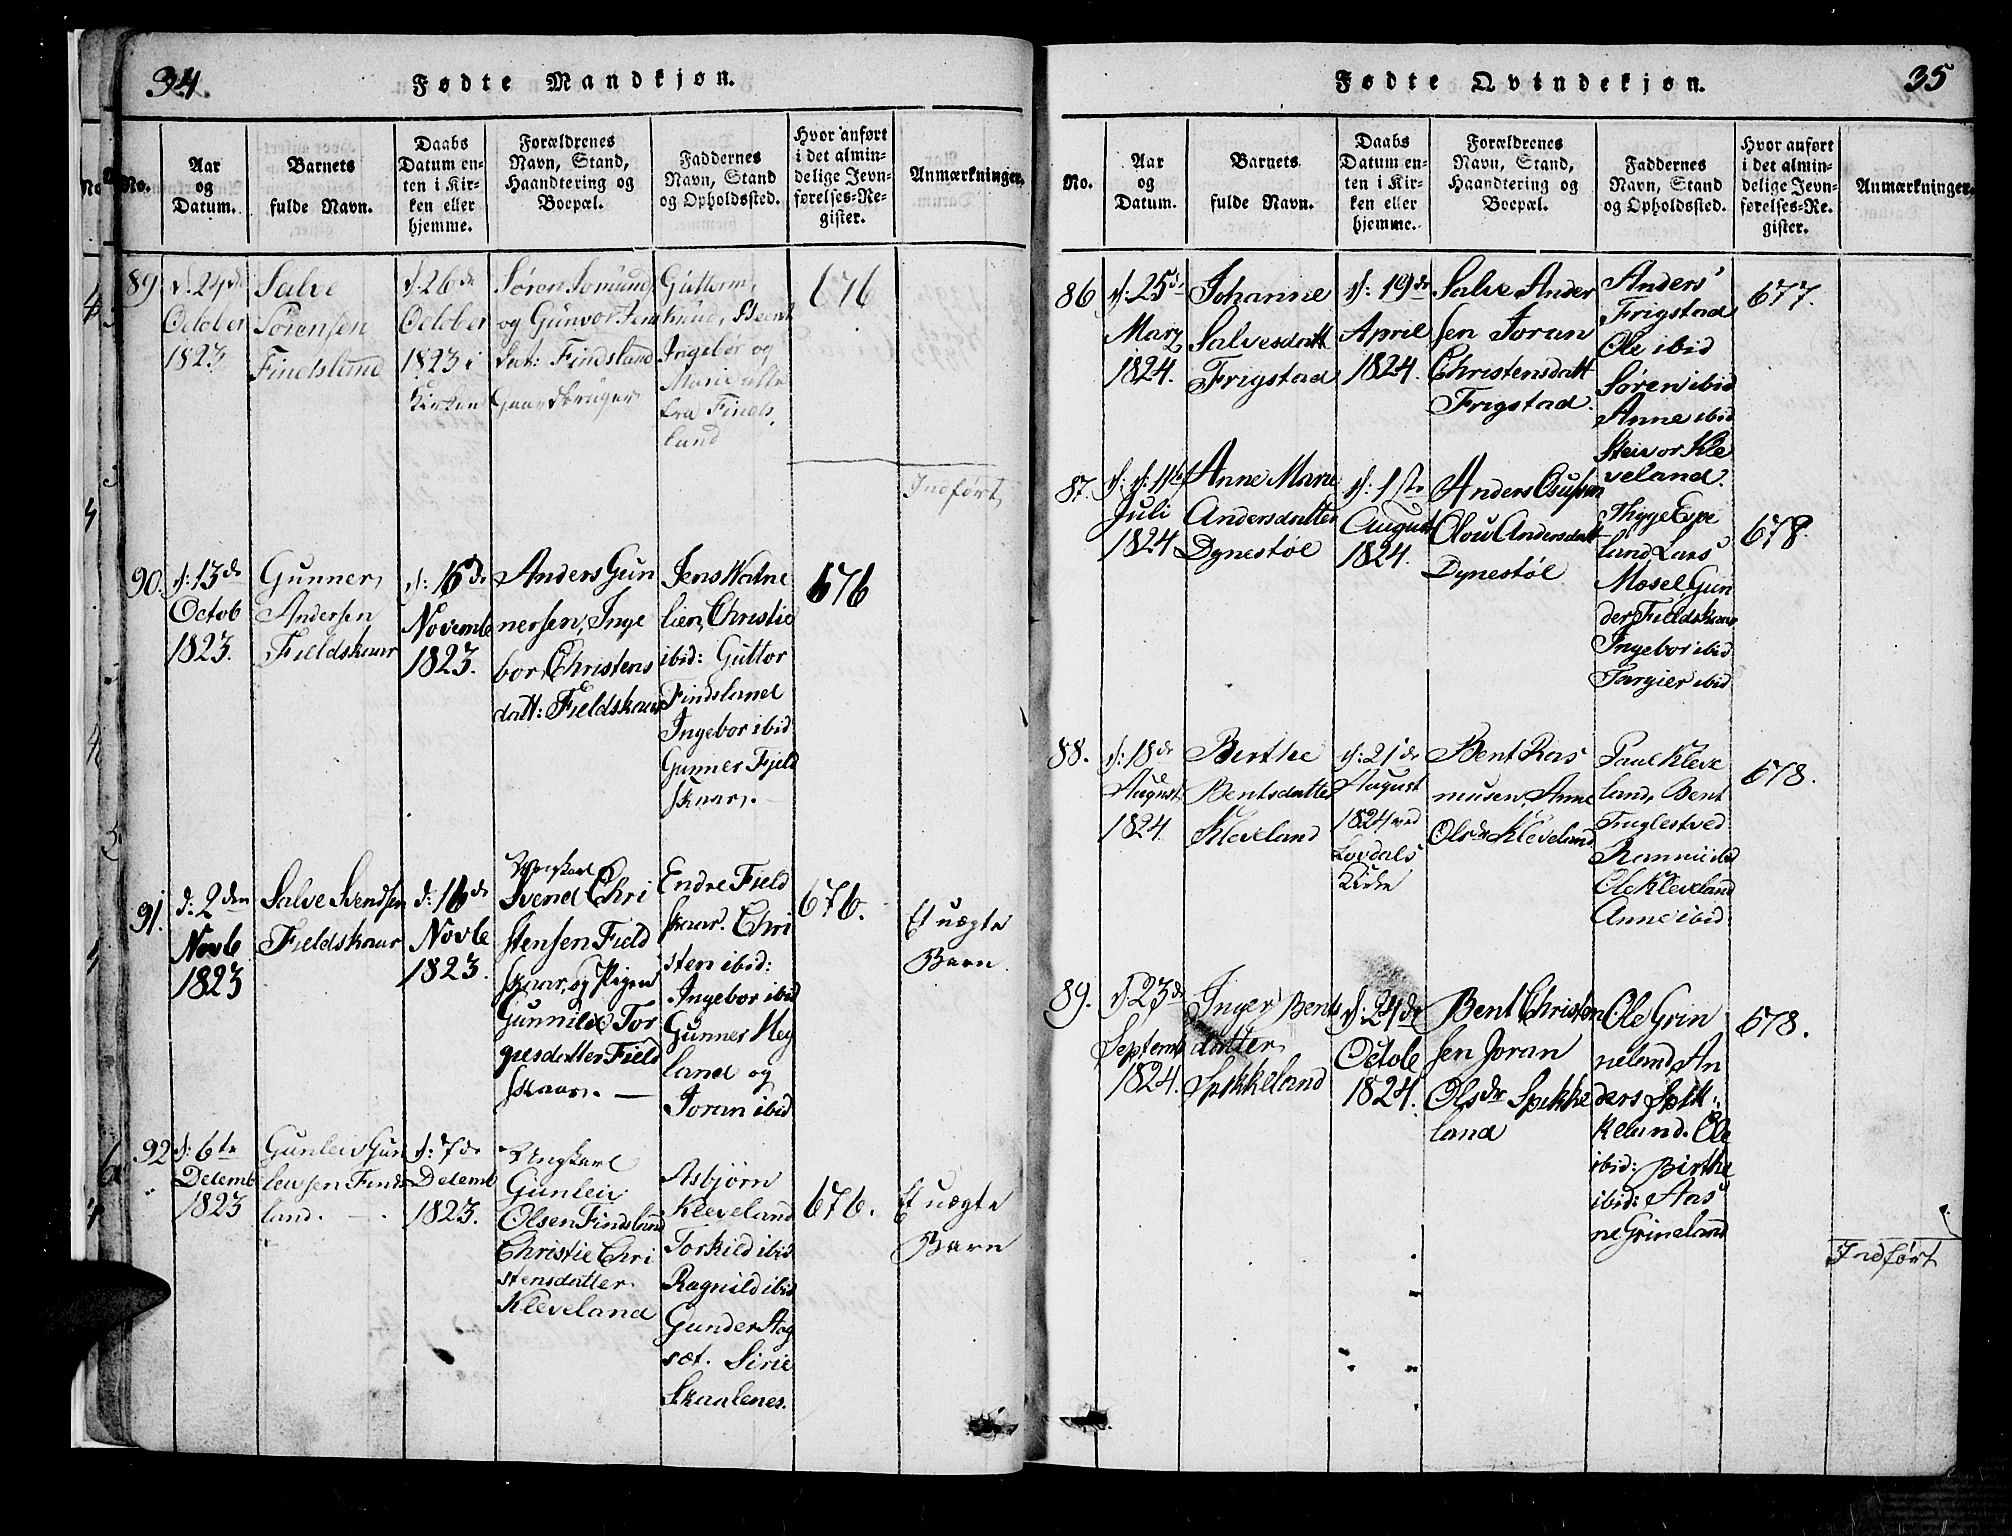 34
Fødte Mandkjøn.
No.
Aar
og
Datum.
Barnets
fulde Navn.
Daabs
Datum en-
ten i Kir-
ken eller
hjemme.
Forældrenes
Navn, Stand,
Haandtering og
Boepæl.
Faddernes
Navn, Stand
og Opholdssted.
Hvor anført
i det almin-
delige Jevn-
førelses-Re-
gister.
Anmærkninger.
89
d. 24de
October
1823
Salve
Sørensen
Findsland
d. 26de
October
1823 i
Kirken
Søren
og Gunvor
Findsland
Gaardbruger
Guttorm,
Knud,
Ingebor og
Marie alle
fra Finds,
land
676
Indført
90.
d: 13de
Octob
1823.
Gunner,
Andersen
Fieldskaar
d: 16de
Novemb
1823.
Anders Gun
nersen, Inge
bor Christens
datt: Fieldskaar
Jens Watne
lien, Christie
ibid: Guttor
Findsland
Ingebor ibid
Gunner Fjeld
skaar. —
676
91.
d: 2den
Novb
1823
Salve Svendsen
Fieldskaar
d: 16de
Novb
1823.
Ungkarl
Svend Chri
stensen Field
skaar, og Pigen
Gunnild Tor
giesdatter Field
skaar. —
Endre Field
skaar. Chri
sten ibid:
Ingebor ibid
Gunner Heg
land og
Joran ibid
676.
Et uægte
Barn.
92
d: 6te
Decemb
1823
Gunleiv Gun
leivsen Finds
land. —
d: 7de
Decemb
1823.
Ungkarl
Gunleiv
Olsen Findsland
Christie Chri
stensdatter
Kleveland
Asbjørn
Kleveland
Torkild ibid
Ragnild ibid
Gunder Aag
sæt. Sirie
Skaalenes.
676.
Et uægte
Barn
35
Fødte Qvindekjøn.
No.
Aar
og
Datum.
Barnets
fulde Navn.
Daabs
Datum en-
ten i Kir-
ken eller
hjemme.
Forældrenes
Navn, Stand,
Haandtering og
Boepæl.
Faddernes
Navn, Stand
og Opholdssted.
Hvor anført
i det almin-
delige Jevn-
førelses-Re-
gister.
Anmærkninger.
86
d: 25de
Marz
1824.
Johanne
Salvesdatt
Frigstad
d: 19de
April
1824.
Salve Ander
sen Joran
Christensdatt
Frigstad.
Anders
Frigstad
Ole ibid
Søren ibid
Anne ibid
Steivor Kle
veland.
677.
87.
d: 11te
Juli
1824
Anne Marie
Andersdatter
Dynestøl
d: 1ste
August
1824.
Anders Osufsen
Olou Andersdatt
Dynestøl
Thyge Espe
land Lars
Mosel, Gun
der Fieldskaar
Ingebor ibid
Targier ibid
678.
88.
d: 18de
August
1824.
Birthe
Bentsdatter
Kleveland
d: 21de
August
1824 ved
Lovdals
Kirke
Bent Ras
musen, Anne
Olsdr Kleveland
Paul Kleve
land, Bent
Fuglestved
Ranni ibd
Ole Kleveland
Anne ibid
678.
89.
d 23de
Septemb
1824.
Inger Bents
datter
Spikkeland
d: 24de
Octob
1824.
Bent Christen
sen Joran
Olsdr Spikke
land
Ole Grin
neland, An
ders Spik
keland. Ole
ibid: Birthe
ibid: Aas
ne Grineland
678.
Indført